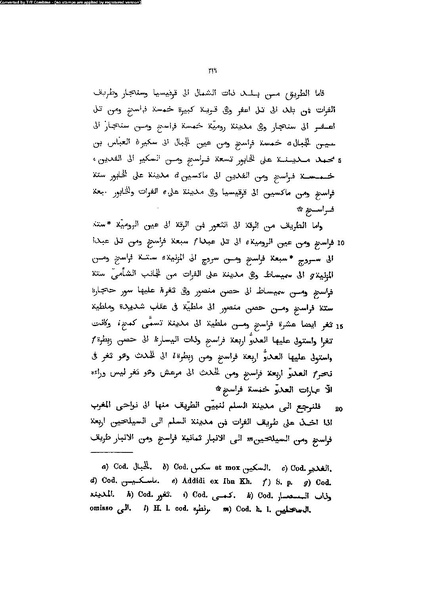 Converted by Tiff Combine - (no stamps are applied by registered version)
٢١٦
فاما الطريق من بلد ذات الشمال الى قرقيسيا وسنجار وطريف
الفرات فن بلد الى تل اعفر وهى قرية كبيرة خمسة فراسخ ومن تل
اعفر الى سنجار وهى مدينة روميّة خمسة فراسخ ومن سنجار الى
عين الجبالa خمسة فراسخ ومن عين الجبال الى سكيرb العبّاس بن
5 محمد مدينة على الخابور تسعة فراسخ ومن السكير الى الفدين،
خمسة فراسخ ومن الفدين الى ماكسين d مدينة على الخابور ستّة
فراسخ ومن ماكسين الى قرقيسيا وهى مدينة علىe الفرات والخابور سبعة
فراسخ *
واما الطريف من الرقّة الى الثغور فن الرقّة الى عين الروميّة *ستة
10 فراسخ ومن عين الروميةe الى تل عبداf سبعة فراسخ ومن تل عبدا
الى سروج *سبعة فراسخ ومن سروج الى المزنيةe ستّة فراسخ ومن
المزنيةg الى سميساط وهى مدينة على الفرات من الجانب الشأمىّ ستّة
فراسخ ومن سميساط الى حصن منصور وهى ثغرh عليها سور حجارة
ستّة فراسخ ومن حصن منصور الى ملطية فى عقاب شديدة وملطية
15 ثغر ايضا عشرة فراسخ ومن ملطية الى مدينة تسمّى كمخi وكانت
ثغرا واستولى عليها العدوّ اربعة فراسخ وذات اليسارk الى حصن زبطرةl
واستولى عليها العدوّ اربعة فراسخ ومن زبطرةl الى الحدث وهو ثغر فى
نحرf العدوّ اربعة فراسخ ومن الحدث الى مرعش وهو ثغر ليس وراءه
الّا عمارات العدوّ خمسة فراسخ *
20 فلنرجع الى مدينة السلم لنبيّن الطريف منها الى نواحى المغرب
اذا اخذ على طريف الفرات فن مدينة السلم الى السيلحين اربعة
فراسخ ومن السيلحينm الى الانبار ثمانية فراسخ ومن الانبار طريف
a) Cod. الخبال. b) Cod. سكس et mox السكين. c) Cod. الغدير.
d) Cod. ماسكسين. e) Addidi ex Ibn Kh. f) S. p. g) Cod.
المدينة. h) Cod. ثغور. i) Cod. كمى. k) Cod. وذات
omisso الى. l) H. l. cod. m) Cod. h. l.